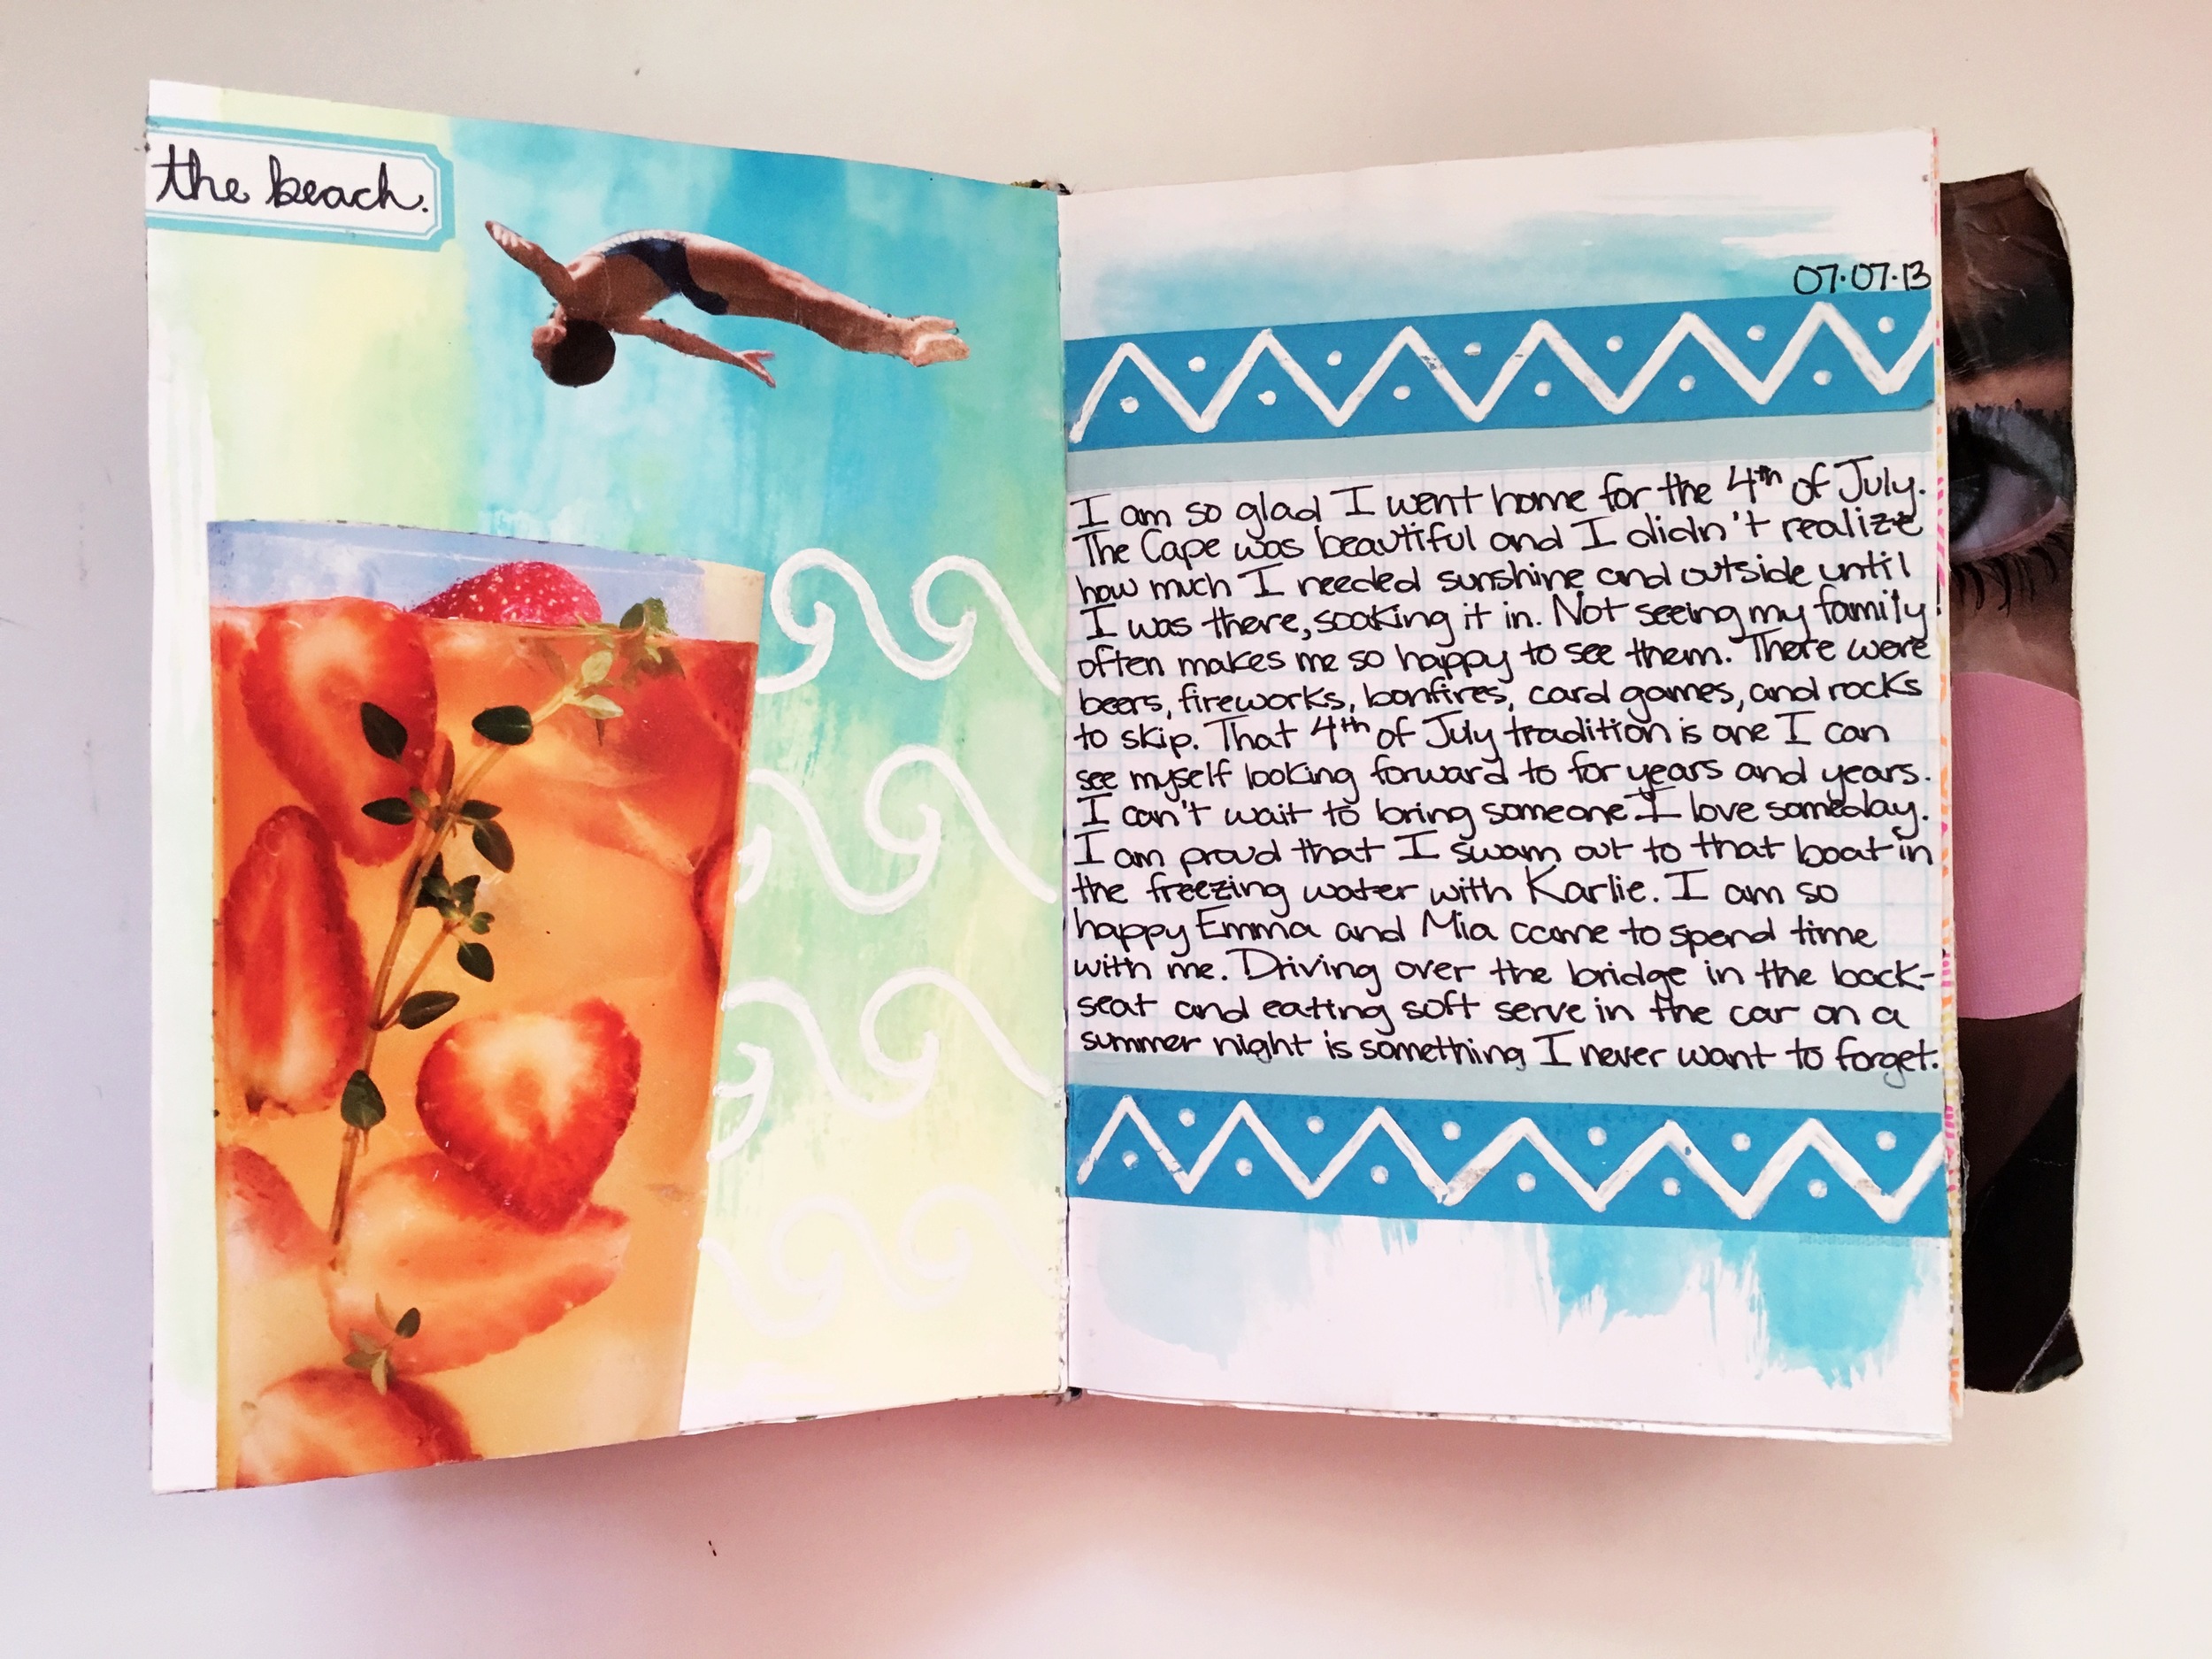 the beach.
07.07.13
I am so glad I went home for the 4th of July.
The Cape was beautiful and I didn't realize
how much I needed sunshine and outside until
I was there, soaking it in. Not seeing my family
often makes me so happy to see them. There were
beers, fireworks, bonfires, card games, and rocks
to skip. That 4th of July tradition is one I can
see myself looking forward to for years and years.
I can't wait to bring someone I love someday.
I am proud that I swam out to that boat in
the freezing water with Karlie. I am so
happy Emma and Mia ccame to spend time
with me. Driving over the bridge in the back-
seat and eating soft serve in the car on a
summer night is something I never want to forget.